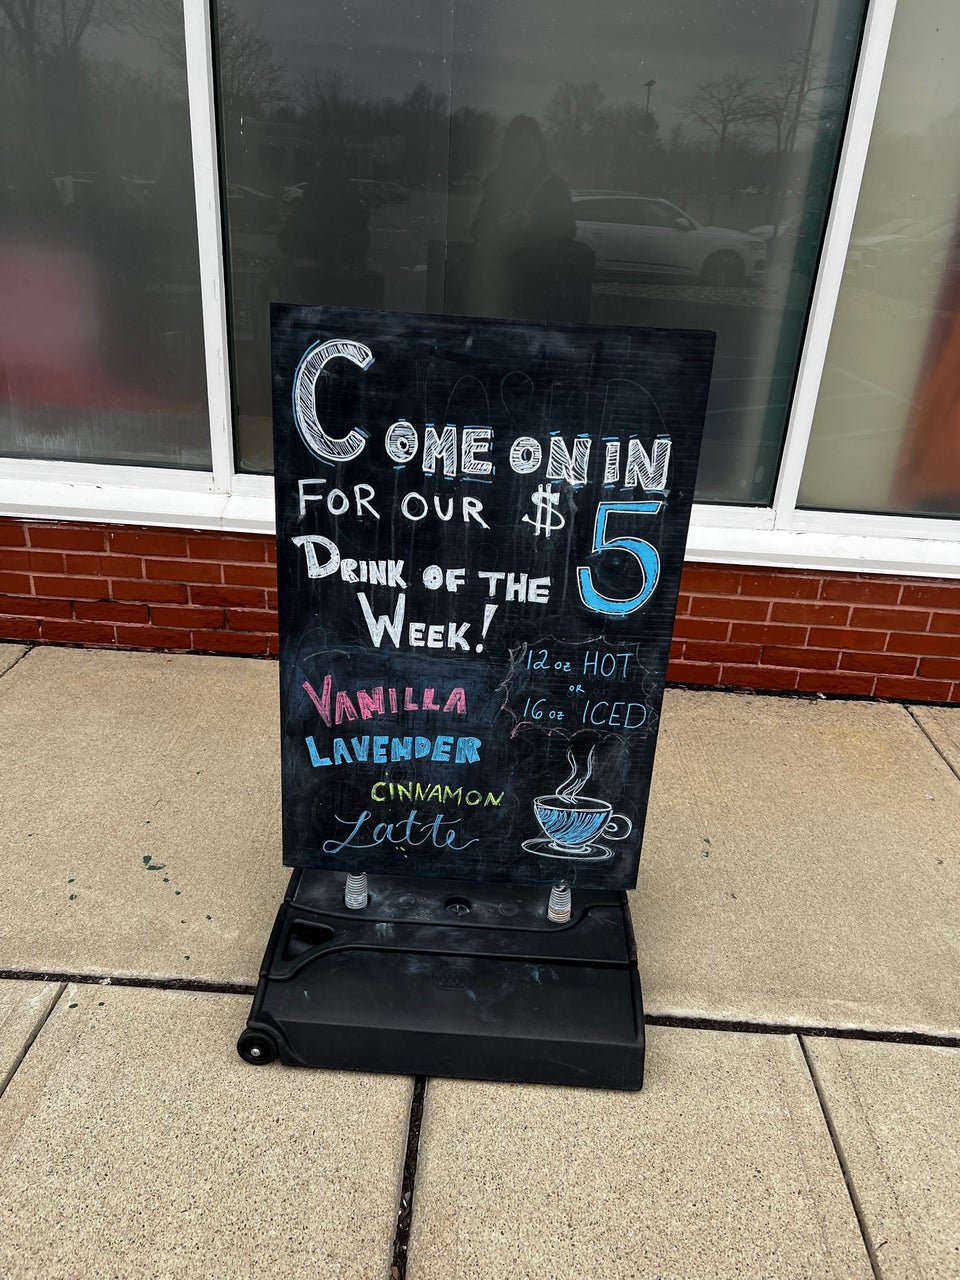 COME ON IN
FOR OUR $5
DRINK OF THE
WEEK!
12 oz HOT
OR
16 oz ICED
VANILLA
LAVENDER
CINNAMON
Latte